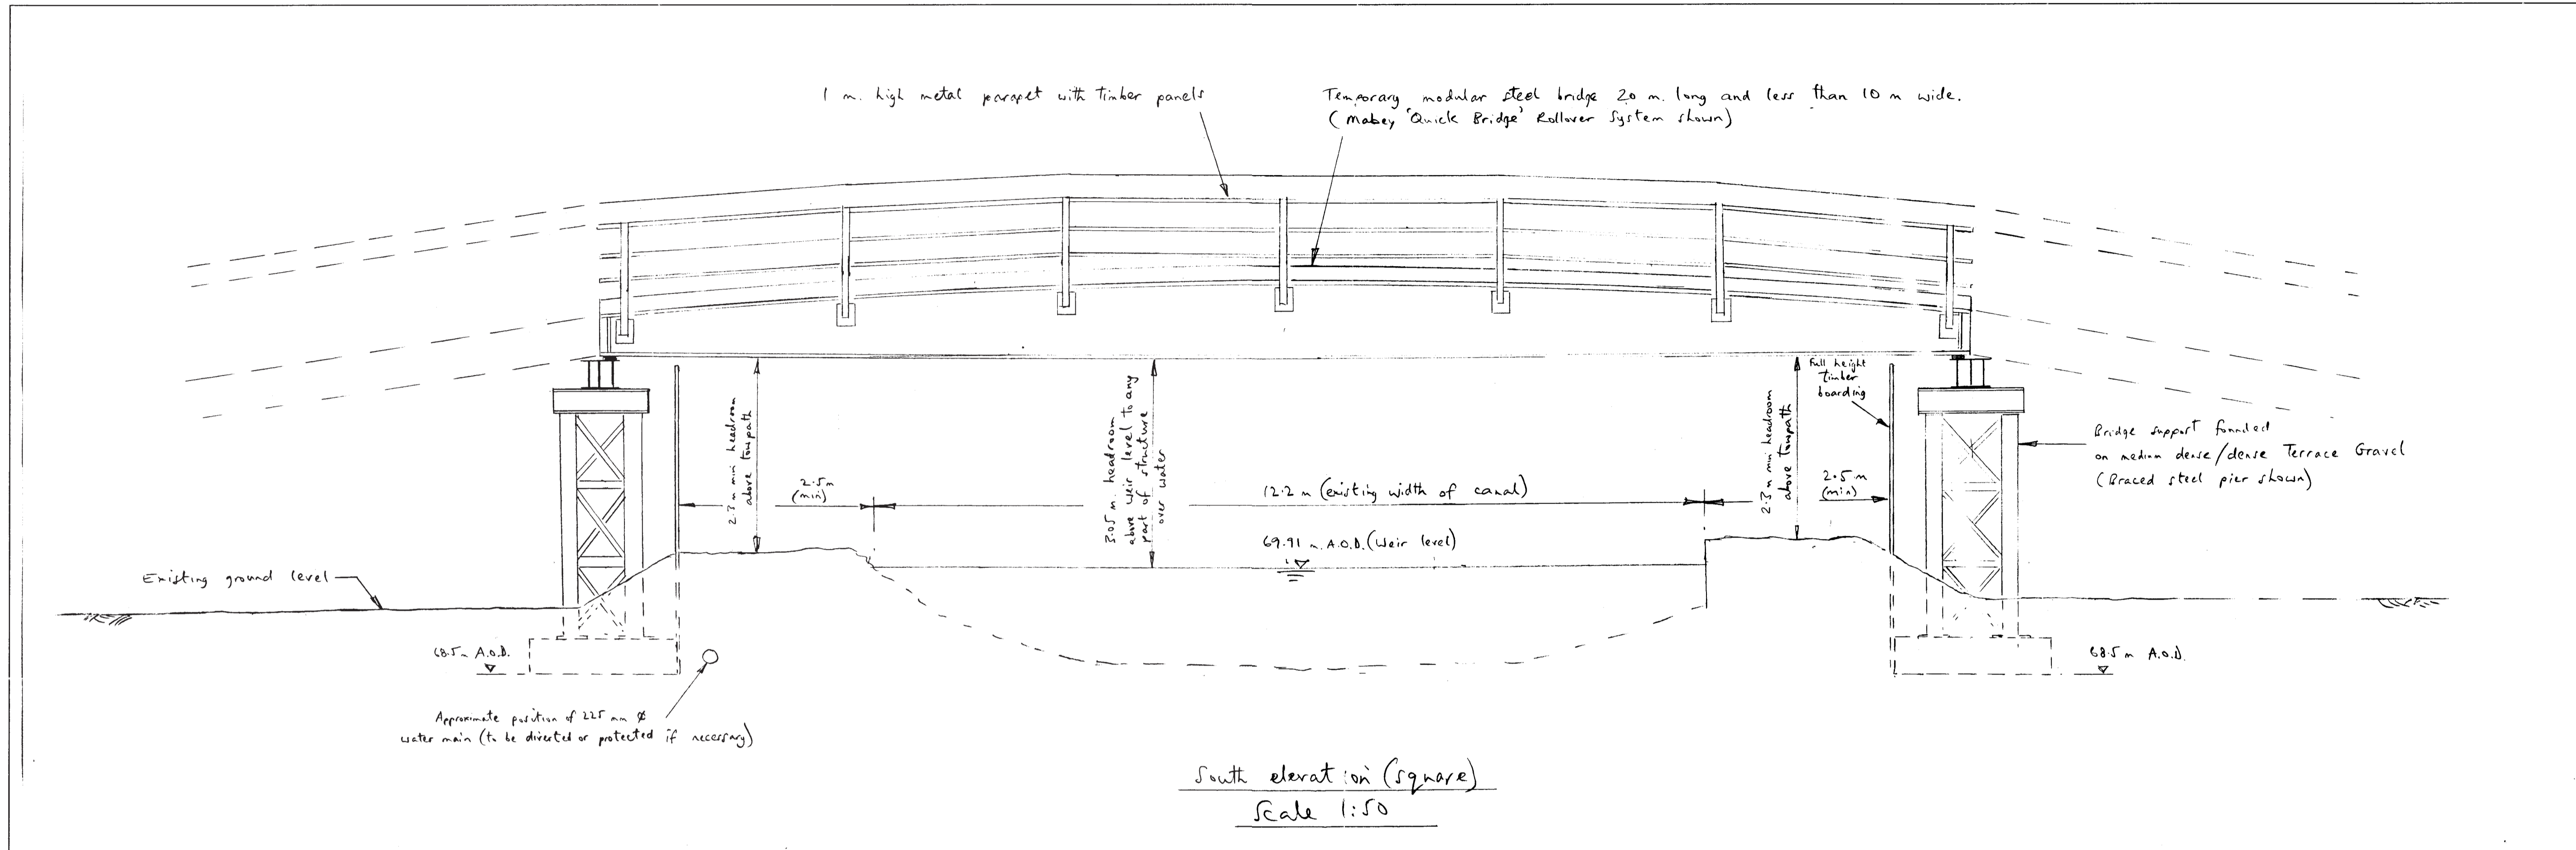 1 m. high metal parapet with timber panels
Temporary modular steel bridge 20 m. long and less than 10 m wide.
(Mabey 'Quick Bridge' Rollover System shown)
2.3 m min headroom
above towpath
2.5m
(min)
3.05 m. headroom
above weir level to any
part of structure
over water
12.2 m (existing width of canal)
69.91 m. A.O.D. (Weir level)
Full height
timber
boarding
2.3 m min headroom
above towpath
2.5 m
(min)
Bridge support founded
on medium dense/dense Terrace Gravel
(Braced steel pier shown)
Existing ground level
68.5 m A.O.D.
68.5 m A.O.D.
Approximate position of 225 mm ø
water main (to be diverted or protected if necessary)
South elevation (square)
Scale 1:50